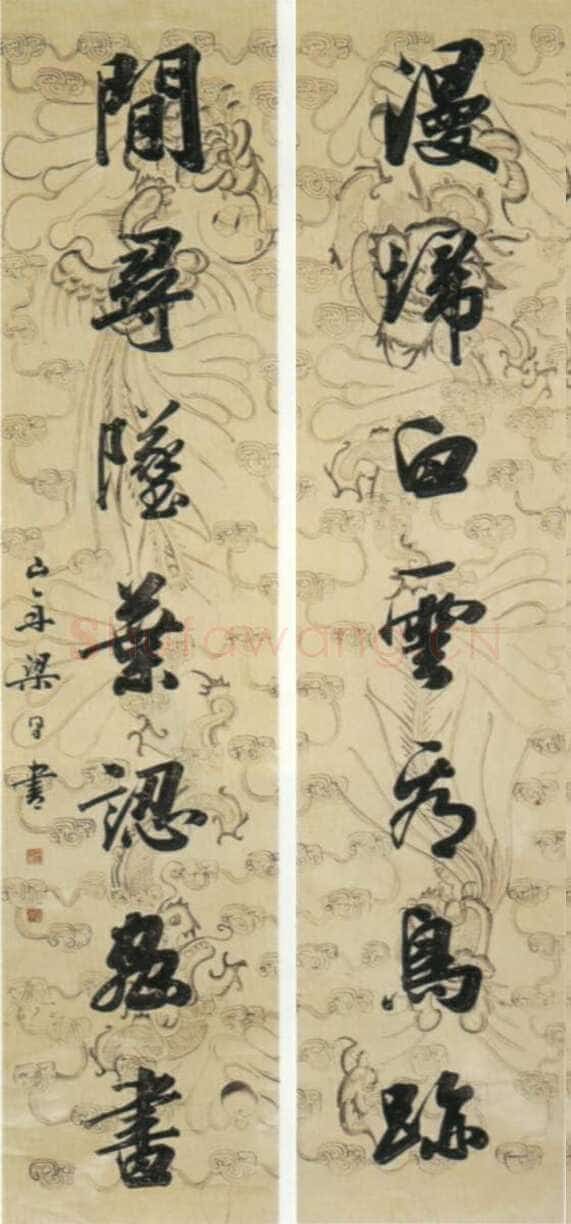 漫埽白雲看鳥跡
閒尋墜葉認蟲書
山舟梁同書
Shufawang.CN